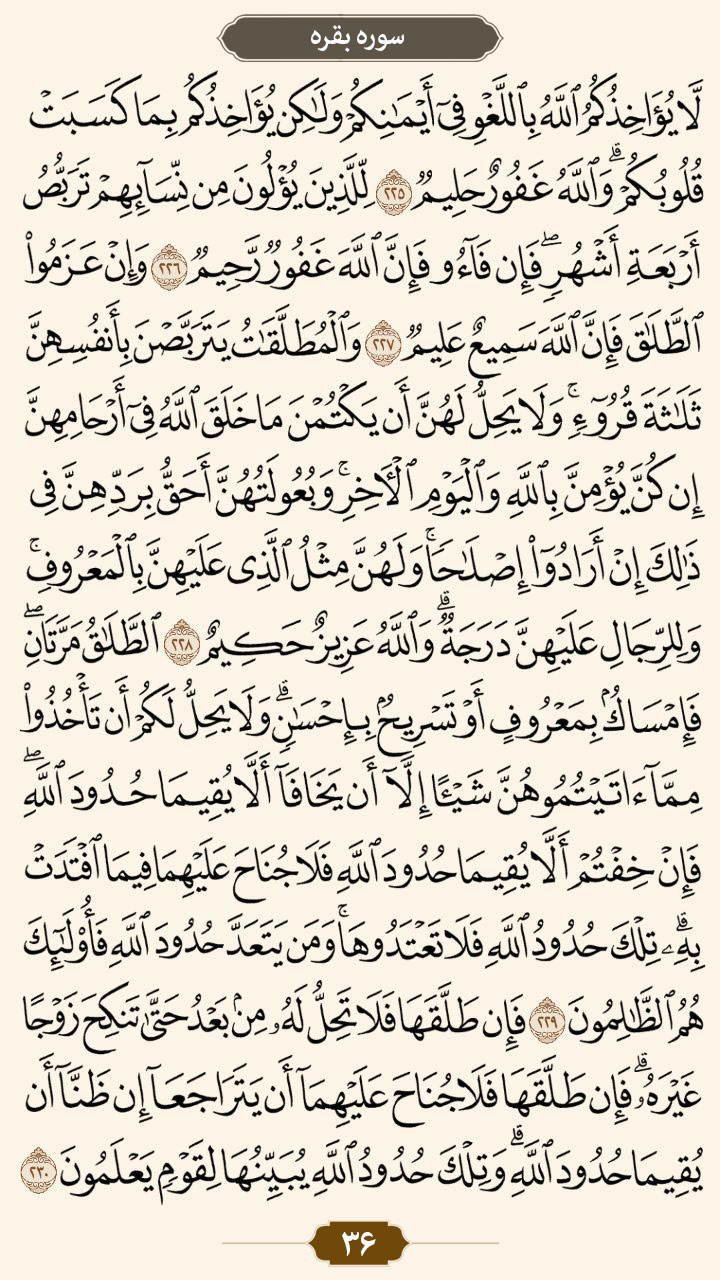 سوره بقره
لَّا يُؤَاخِذُكُمُ ٱللَّهُ بِٱللَّغْوِ فِىٓ أَيْمَـٰنِكُمْ وَلَـٰكِن يُؤَاخِذُكُم بِمَا كَسَبَتْ
قُلُوبُكُمْ ۗ وَٱللَّهُ غَفُورٌ حَلِيمٌ ٢٢٥ لِّلَّذِينَ يُؤْلُونَ مِن نِّسَآئِهِمْ تَرَبُّصُ
أَرْبَعَةِ أَشْهُرٍ ۖ فَإِن فَآءُو فَإِنَّ ٱللَّهَ غَفُورٌ رَّحِيمٌ ٢٢٦ وَإِنْ عَزَمُوا۟
ٱلطَّلَـٰقَ فَإِنَّ ٱللَّهَ سَمِيعٌ عَلِيمٌ ٢٢٧ وَٱلْمُطَلَّقَـٰتُ يَتَرَبَّصْنَ بِأَنفُسِهِنَّ
ثَلَـٰثَةَ قُرُوٓءٍ ۚ وَلَا يَحِلُّ لَهُنَّ أَن يَكْتُمْنَ مَا خَلَقَ ٱللَّهُ فِىٓ أَرْحَامِهِنَّ
إِن كُنَّ يُؤْمِنَّ بِٱللَّهِ وَٱلْيَوْمِ ٱلْـَٔاخِرِ ۚ وَبُعُولَتُهُنَّ أَحَقُّ بِرَدِّهِنَّ فِى
ذَٰلِكَ إِنْ أَرَادُوٓا۟ إِصْلَـٰحًا ۚ وَلَهُنَّ مِثْلُ ٱلَّذِى عَلَيْهِنَّ بِٱلْمَعْرُوفِ ۚ
وَلِلرِّجَالِ عَلَيْهِنَّ دَرَجَةٌ ۗ وَٱللَّهُ عَزِيزٌ حَكِيمٌ ٢٢٨ ٱلطَّلَـٰقُ مَرَّتَانِ ۖ
فَإِمْسَاكٌۢ بِمَعْرُوفٍ أَوْ تَسْرِيحٌۢ بِإِحْسَـٰنٍ ۗ وَلَا يَحِلُّ لَكُمْ أَن تَأْخُذُوا۟
مِمَّآ ءَاتَيْتُمُوهُنَّ شَيْـًٔا إِلَّآ أَن يَخَافَآ أَلَّا يُقِيمَا حُدُودَ ٱللَّهِ ۖ
فَإِنْ خِفْتُمْ أَلَّا يُقِيمَا حُدُودَ ٱللَّهِ فَلَا جُنَاحَ عَلَيْهِمَا فِيمَا ٱفْتَدَتْ
بِهِۦ ۗ تِلْكَ حُدُودُ ٱللَّهِ فَلَا تَعْتَدُوهَا ۚ وَمَن يَتَعَدَّ حُدُودَ ٱللَّهِ فَأُو۟لَـٰٓئِكَ
هُمُ ٱلظَّـٰلِمُونَ ٢٢٩ فَإِن طَلَّقَهَا فَلَا تَحِلُّ لَهُۥ مِنۢ بَعْدُ حَتَّىٰ تَنكِحَ زَوْجًا
غَيْرَهُۥ ۗ فَإِن طَلَّقَهَا فَلَا جُنَاحَ عَلَيْهِمَآ أَن يَتَرَاجَعَآ إِن ظَنَّآ أَن
يُقِيمَا حُدُودَ ٱللَّهِ ۗ وَتِلْكَ حُدُودُ ٱللَّهِ يُبَيِّنُهَا لِقَوْمٍ يَعْلَمُونَ ٢٣٠
۳۶